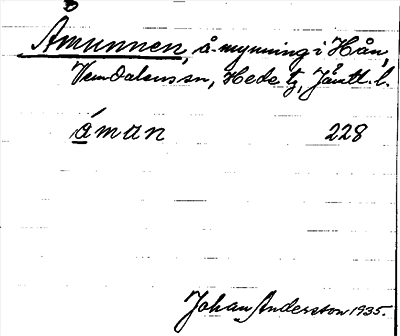 Åmunnen, å-mynning i Hån,
Vemdalens sn, Hede tg, Jämtl. l.
åman 228
Johan Andersson 1935.